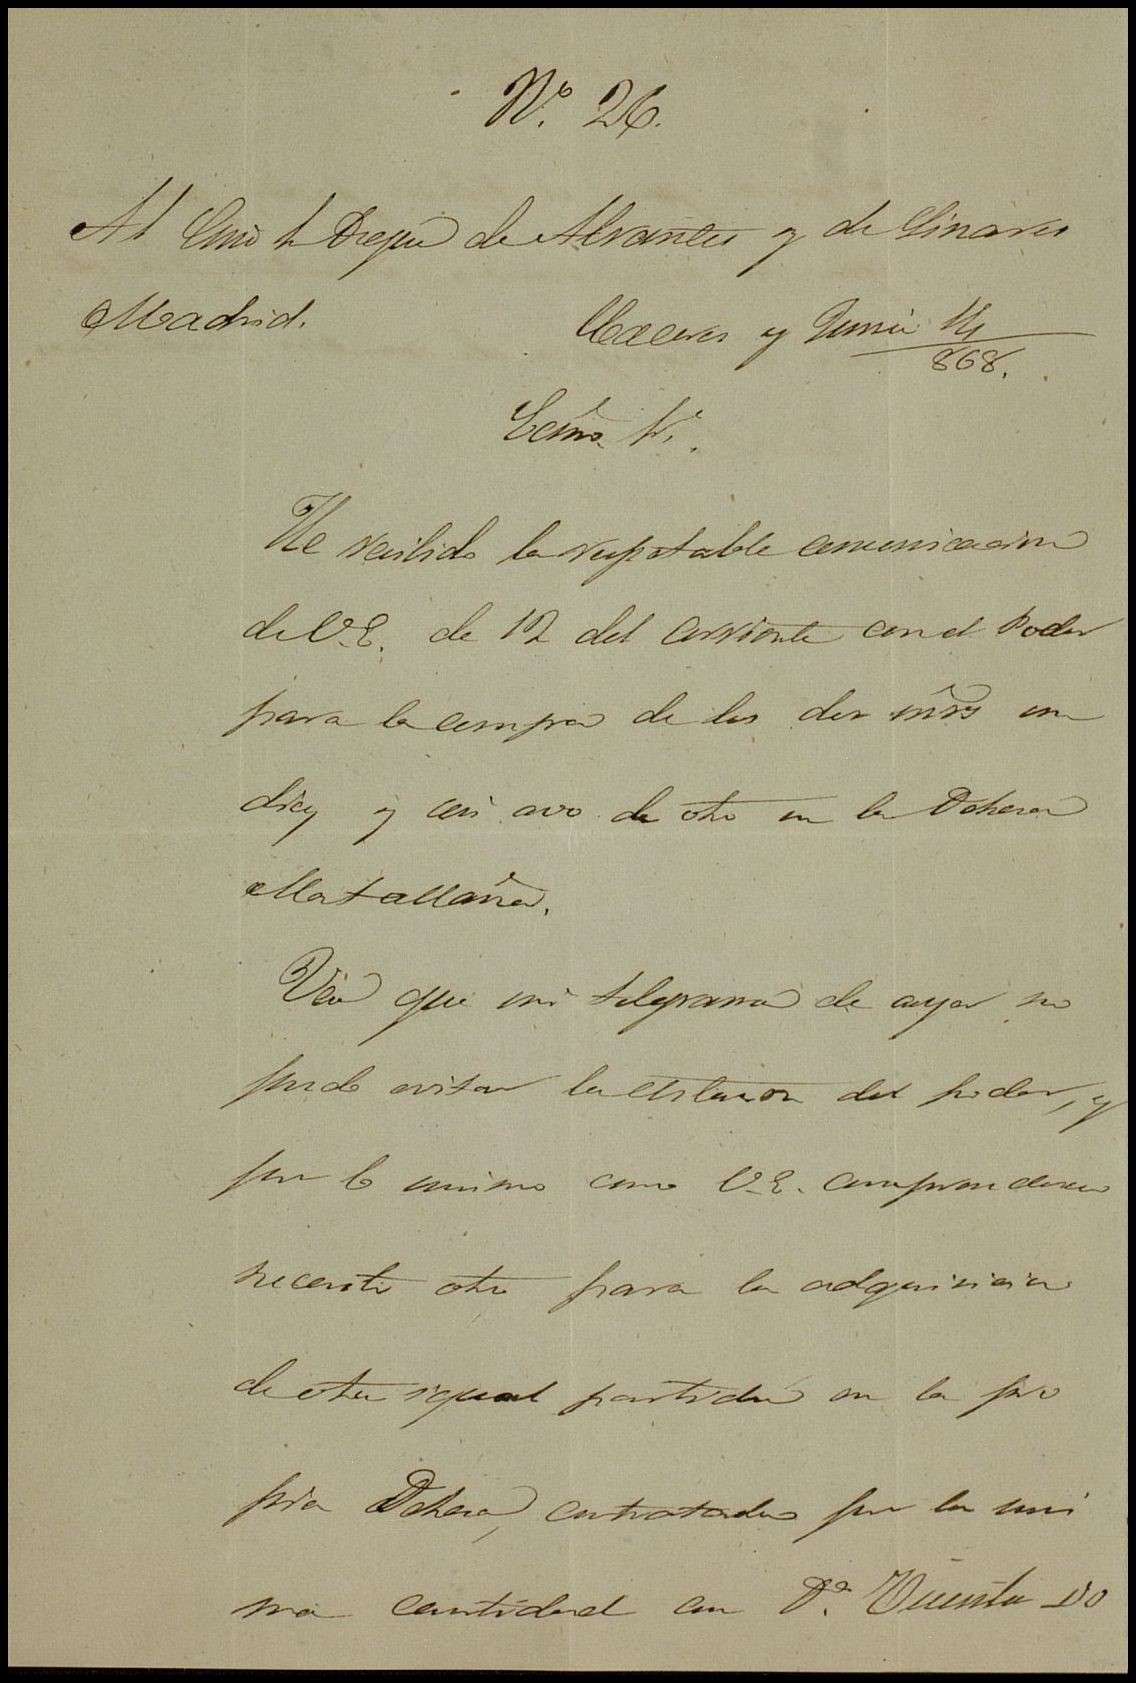 Nº. 26.
Al Exmo Sr Duque de Abrantes y de Linares
Madrid.
Caceres y Junio 14
868.
Excmo Sr.
He recibido la respetable comunicacion
de V.E. de 12 del corriente con el Poder
para la compra de los dos mrs un
diez y seis avo de otro en la Dehesa
Matallana.
Veo que mi telegrama de ayer no
pudo evitar la estension del poder, y
por lo mismo como V.E. comprendera
necesito otro para la adquisicion
de otra igual partida en la pro
pia Dehesa, contratada por la mis
ma cantidad con Dª. Vicenta Do